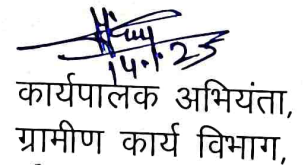 14.1.23
कार्यपालक अभियंता,
ग्रामीण कार्य विभाग,